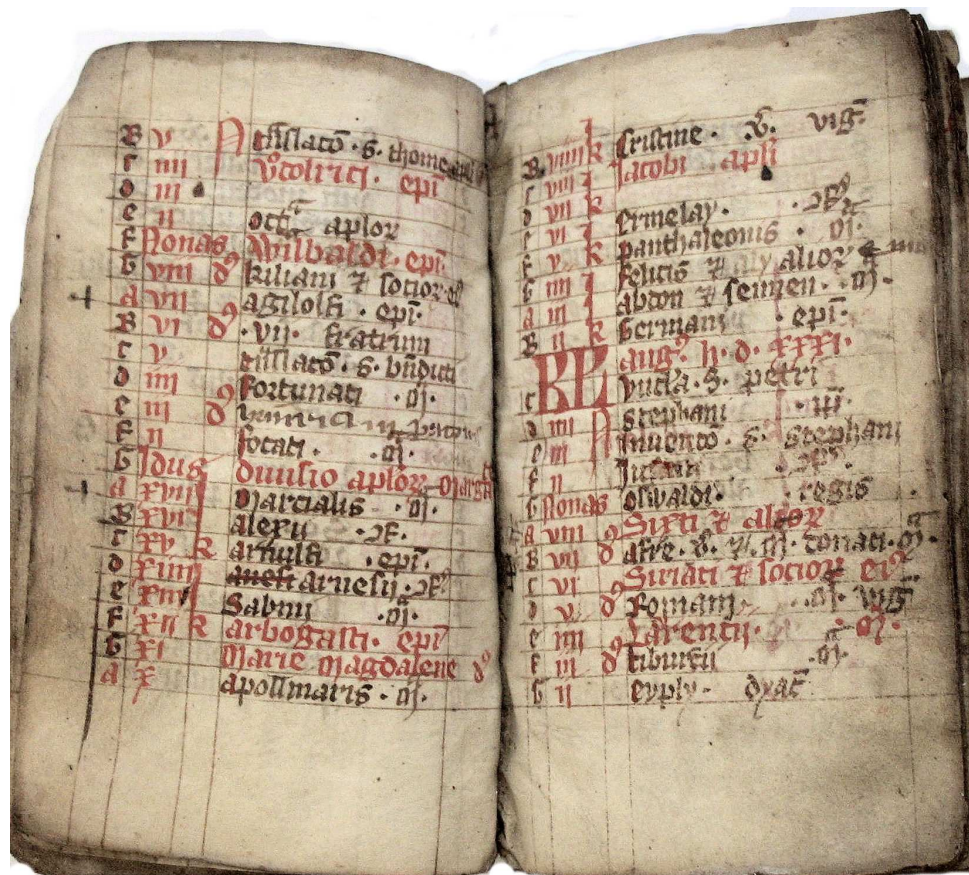 B v N Tnslaco. S. thome apli
c iiii Uotlrici. epi
d iii
e ii oct aplor
F Nonas Wilbaldi. epi
G viii d9 kiliani & socior
a vii agilolfi. epi.
B vi d9 .vii. fratrum
c v Tnslaco. S. bndicti
d iiii d9 Fortunati. m.
e iii
F ii focati. m.
G Idus divisio aplor. marg
a xvii Marcialis. m.
B xvi alexii. 
c xv k arnulfi. epi.
d xiiii arnesii.
e xiii Sabini. m.
F xii k arbogasti. epi
G xi Marie Magdalene d9
a x apollinaris. m.
Cristine. v. vig
B viiii k Jacobi apli
c viii
d vii k Ermelay.
e vi Panthaleonis. m.
F v k felicis & alior
G iiii abdon & sennen. m.
a iii Germani. epi.
B ii k
KL aug9 h. d. xxxi.
c vincla. S. petri
d iiii N stephani
e iii Invento. S. Stephani
F ii Justini
G Nonas oswaldi. regis
a viii d9 Sixti & alior
B vii afre. v. & m. donati. m.
c vi d9 Siriaci & socior ei9
d v Romani. m. vig
e iiii d9 Larencii. m.
F iii tiburcii m.
G ii euply. dyac